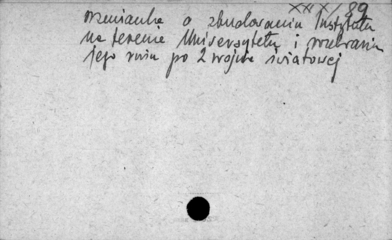 XXX/89
wzmianka o zbudowaniu Instytutu
na terenie Uniwersytetu i
jego po 2 wojnie światowej